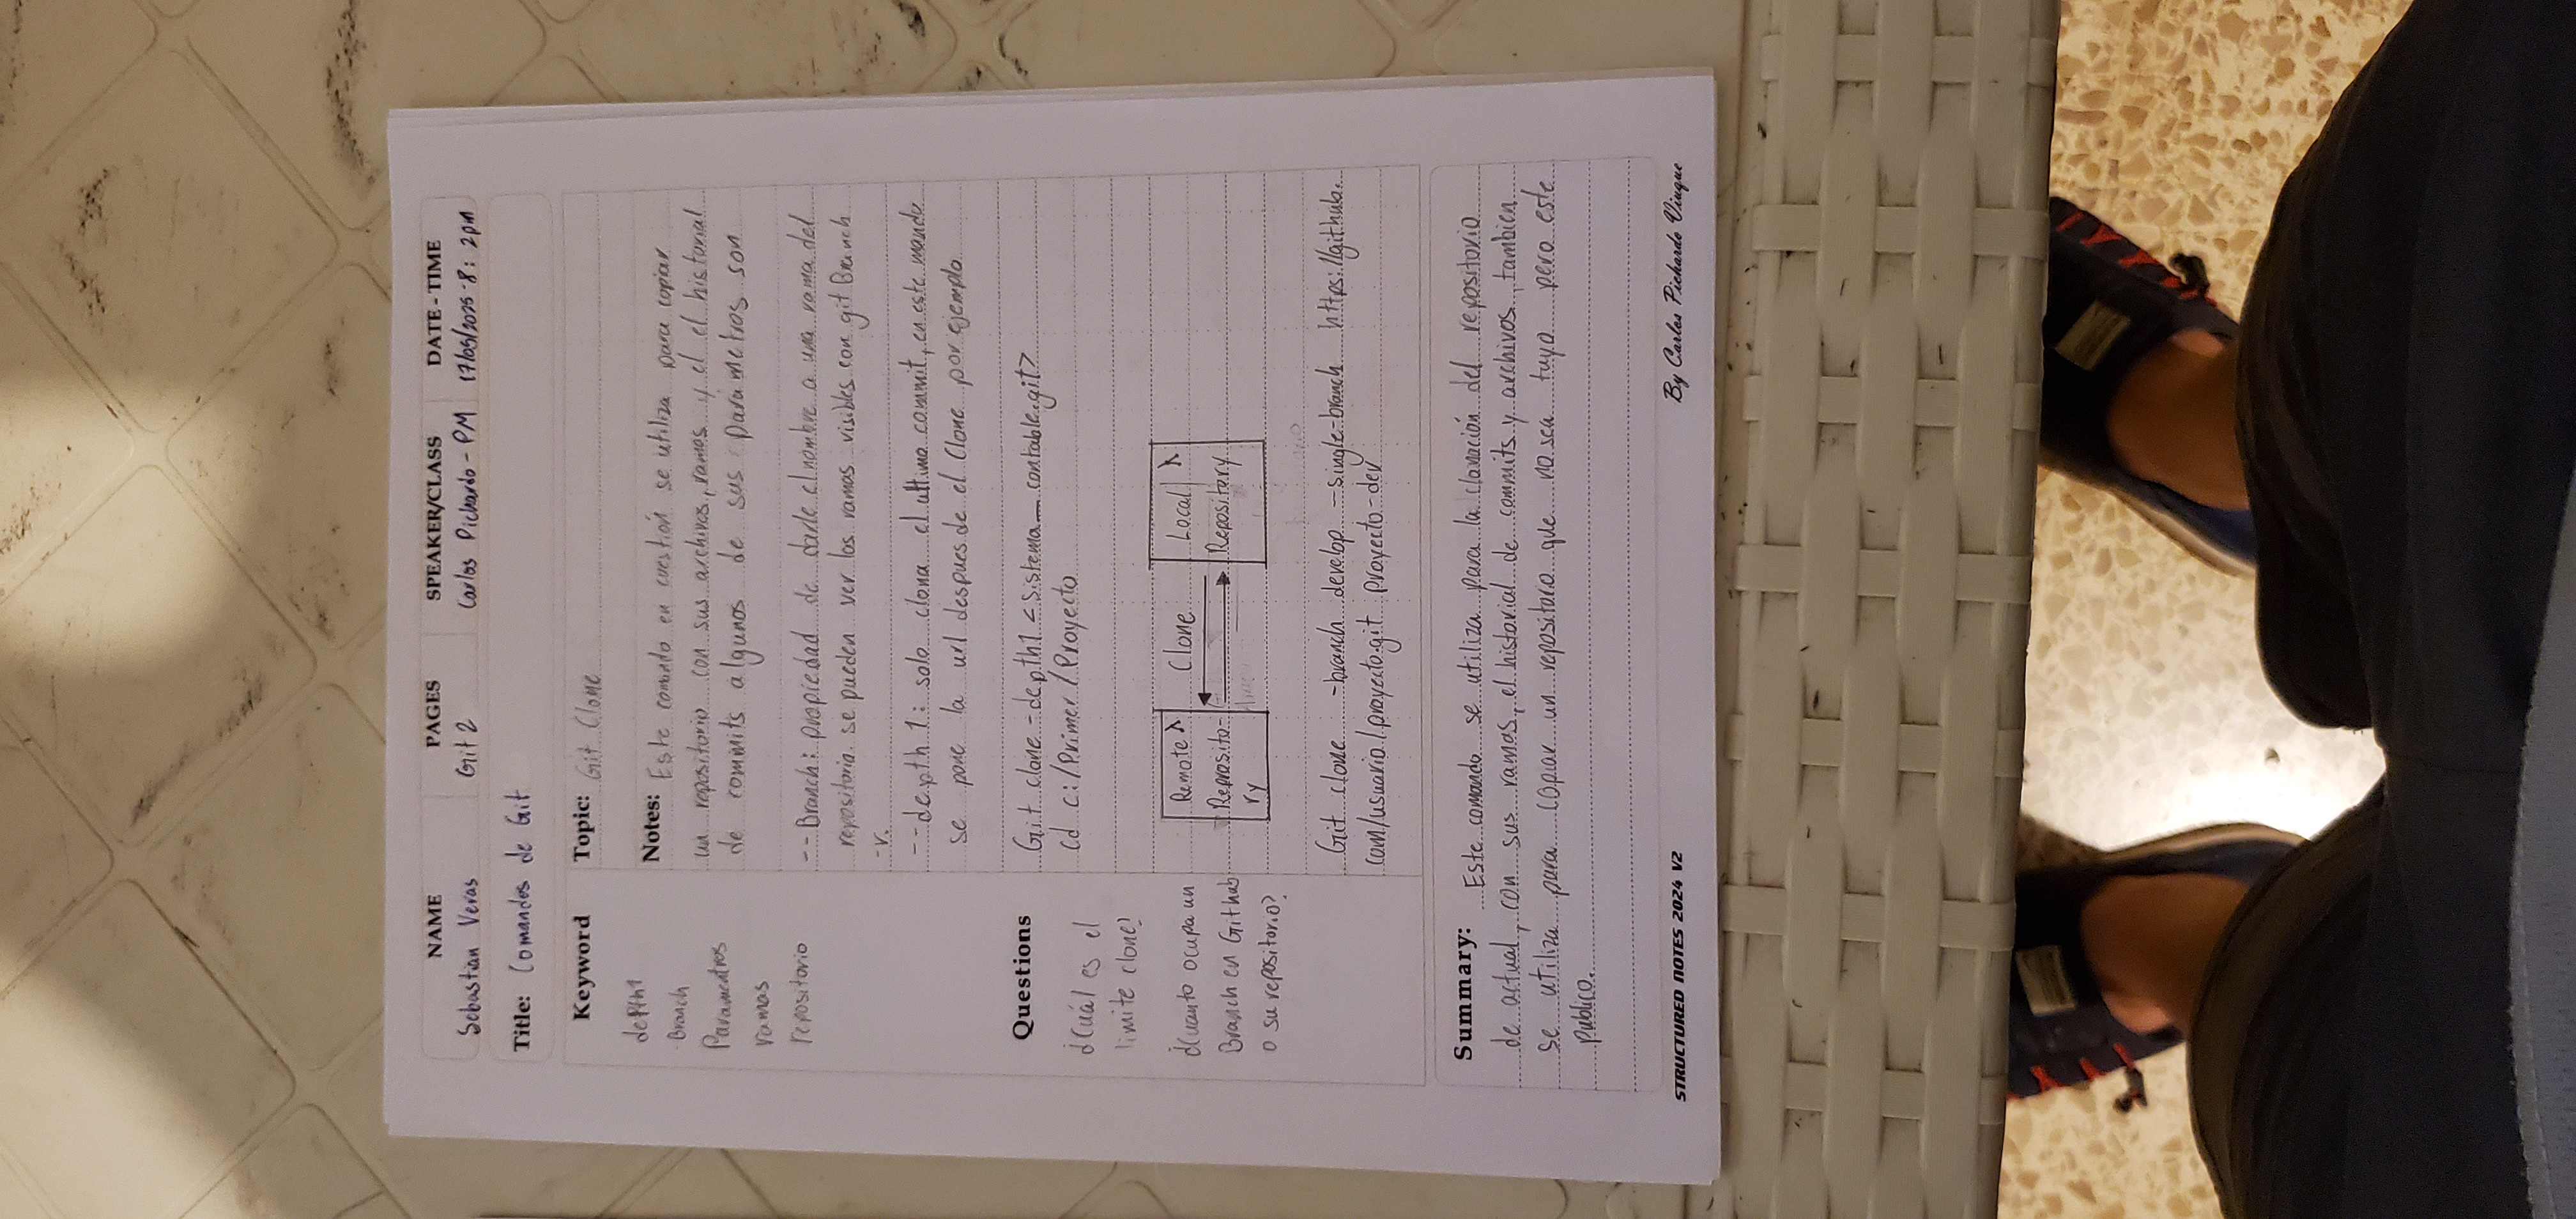 NAME PAGES SPEAKER/CLASS DATE-TIME
Sebastian Veras Git 2 Carlos Pichardo - PM 17/05/2025-8: 2pm
Title: Comandos de Git
Keyword
depth1
Branch
Paramentros
ramas
repositorio
Topic: Git Clone
Notes: Este comando en cuestión se utiliza para copiar
un repositorio con sus archivos, ramas y el el historial
de commits algunos de sus parámetros son
--Branch: propiedad de darle el nombre a una rama del
repositorio. se pueden ver las ramas visibles con git Branch
-v.
--depth 1: solo clona el ultimo commit, en este mando
se pone la url despues de el Clone por ejemplo
Questions
¿Cuál es el
limite clone?
¿Cuanto ocupa un
Branch en Github
o su repositorio?
Git clone -depth1 <Sistema_contable.git>
Cd c:/Primer/Proyecto
Remote λ Clone Local λ
Reprosito- Repository
ry
Git clone -branch develop -single-branch https://github.
com/usuario/proyecto.git proyecto-dev
Summary: Este comando se utiliza para la clonación del repositorio
de actual, con sus ramas, el historial de commits y archivos, tambien
se utiliza para copiar un repositoro que no sea tuyo pero este
publico.
STRUCTURED NOTES 2024 V2 By Carlos Pichardo Viuque